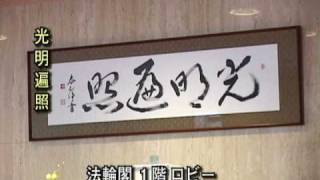 光明遍照
光明遍照
法輪閣 1階 ロビー